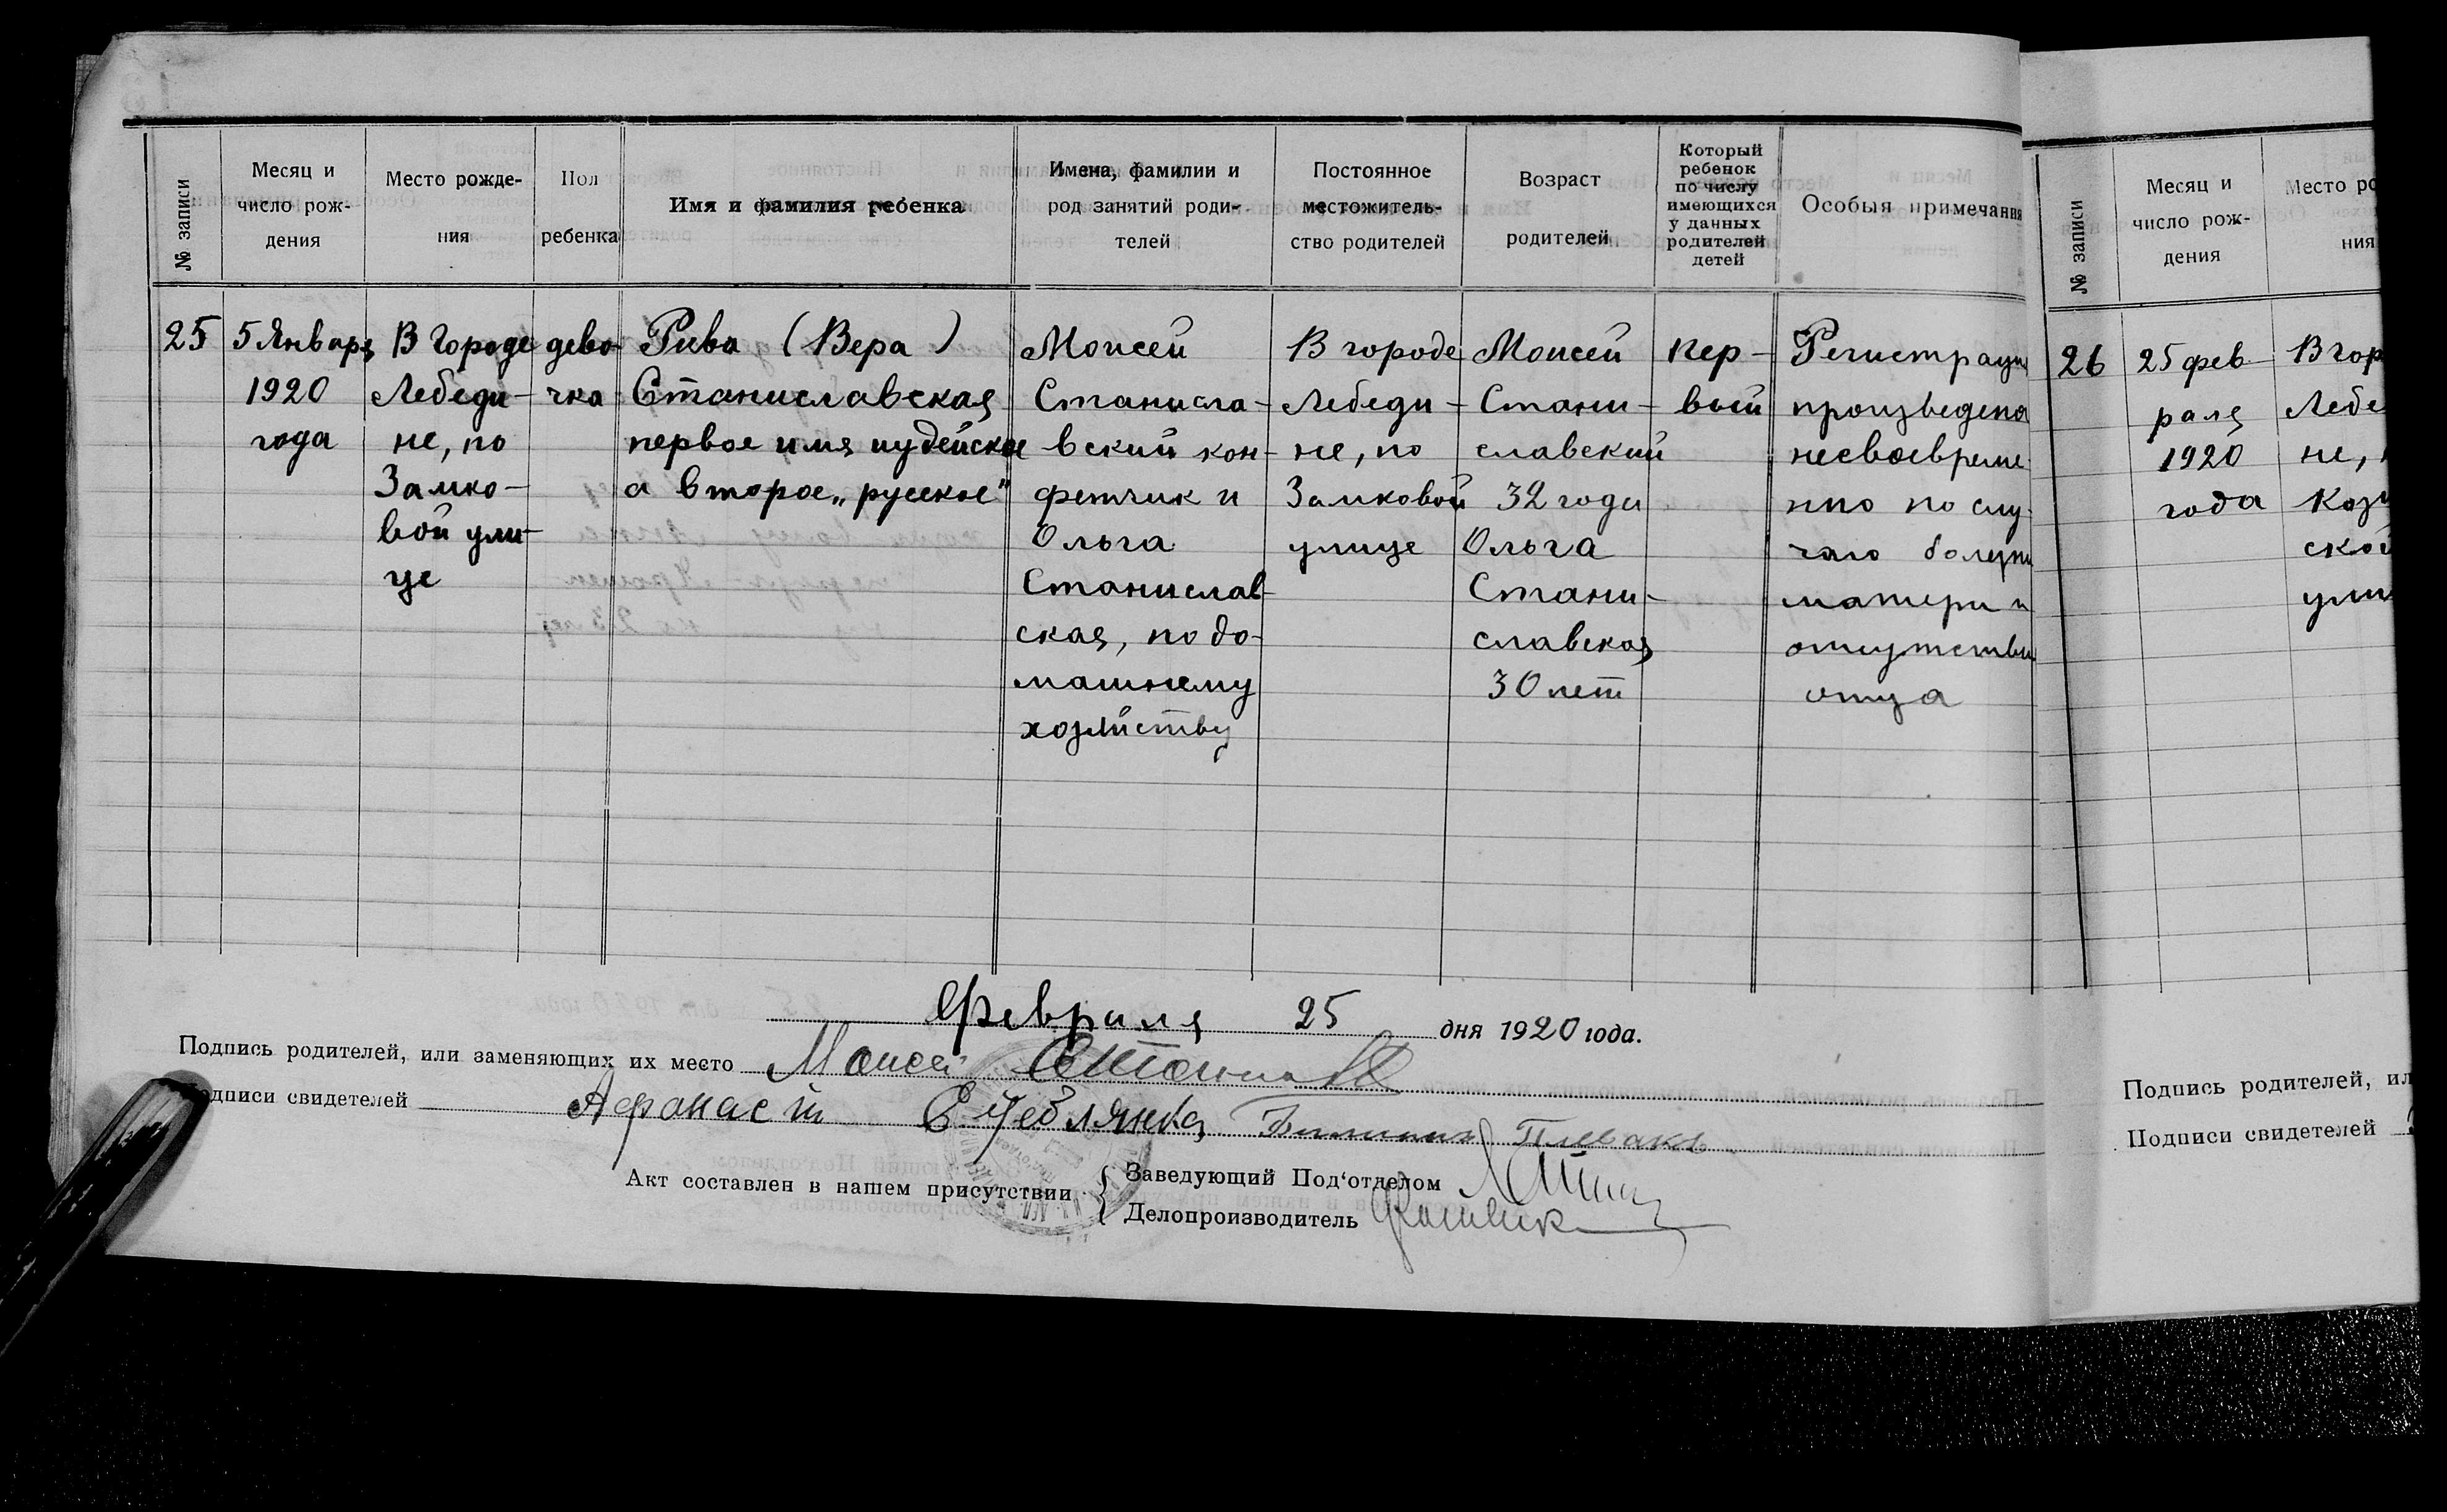 № записи
Месяц и
число рож-
дения
Место рожде-
ния
Пол
ребенка
Имя и фамилия ребенка
Имена, фамилии и
род занятий роди-
телей
Постоянное
местожитель-
ство родителей
Возраст
родителей
Который
ребенок
по числу
имеющихся
у данных
родителей
детей
Особыя примечания
25
5 Января
1920
года
В городе
Лебеди-
не, по
Замко-
вой ули-
це
дево-
чка
Рива (Вера)
Станиславская
первое имя иудейское
а второе „русское"
Моисей
Станисла-
вский кон-
фетчик и
Ольга
Станислав-
ская, по до-
машнему
хозяйству
В городе
Лебеди-
не, по
Замковой
улице
Моисей
Стани-
славский
32 года
Ольга
Стани-
славская
30 лет
пер-
вый
Регистрация
произведена
несвоевреме-
нно по слу-
чаю болезни
матери и
отсутствии
отца
Февраля 25 дня 1920 года.
Подпись родителей, или заменяющих их место Моисей
Подписи свидетелей Афанасий
Акт составлен в нашем присутствии
Заведующий Под'отделом
Делопроизводитель
№ записи
Месяц и
число рож-
дения
Место ро
ния
26
25 фев-
раля
1920
года
В гор
Лебе
не,
Кози
ской
ули
Подпись родителей, ил
Подписи свидетелей